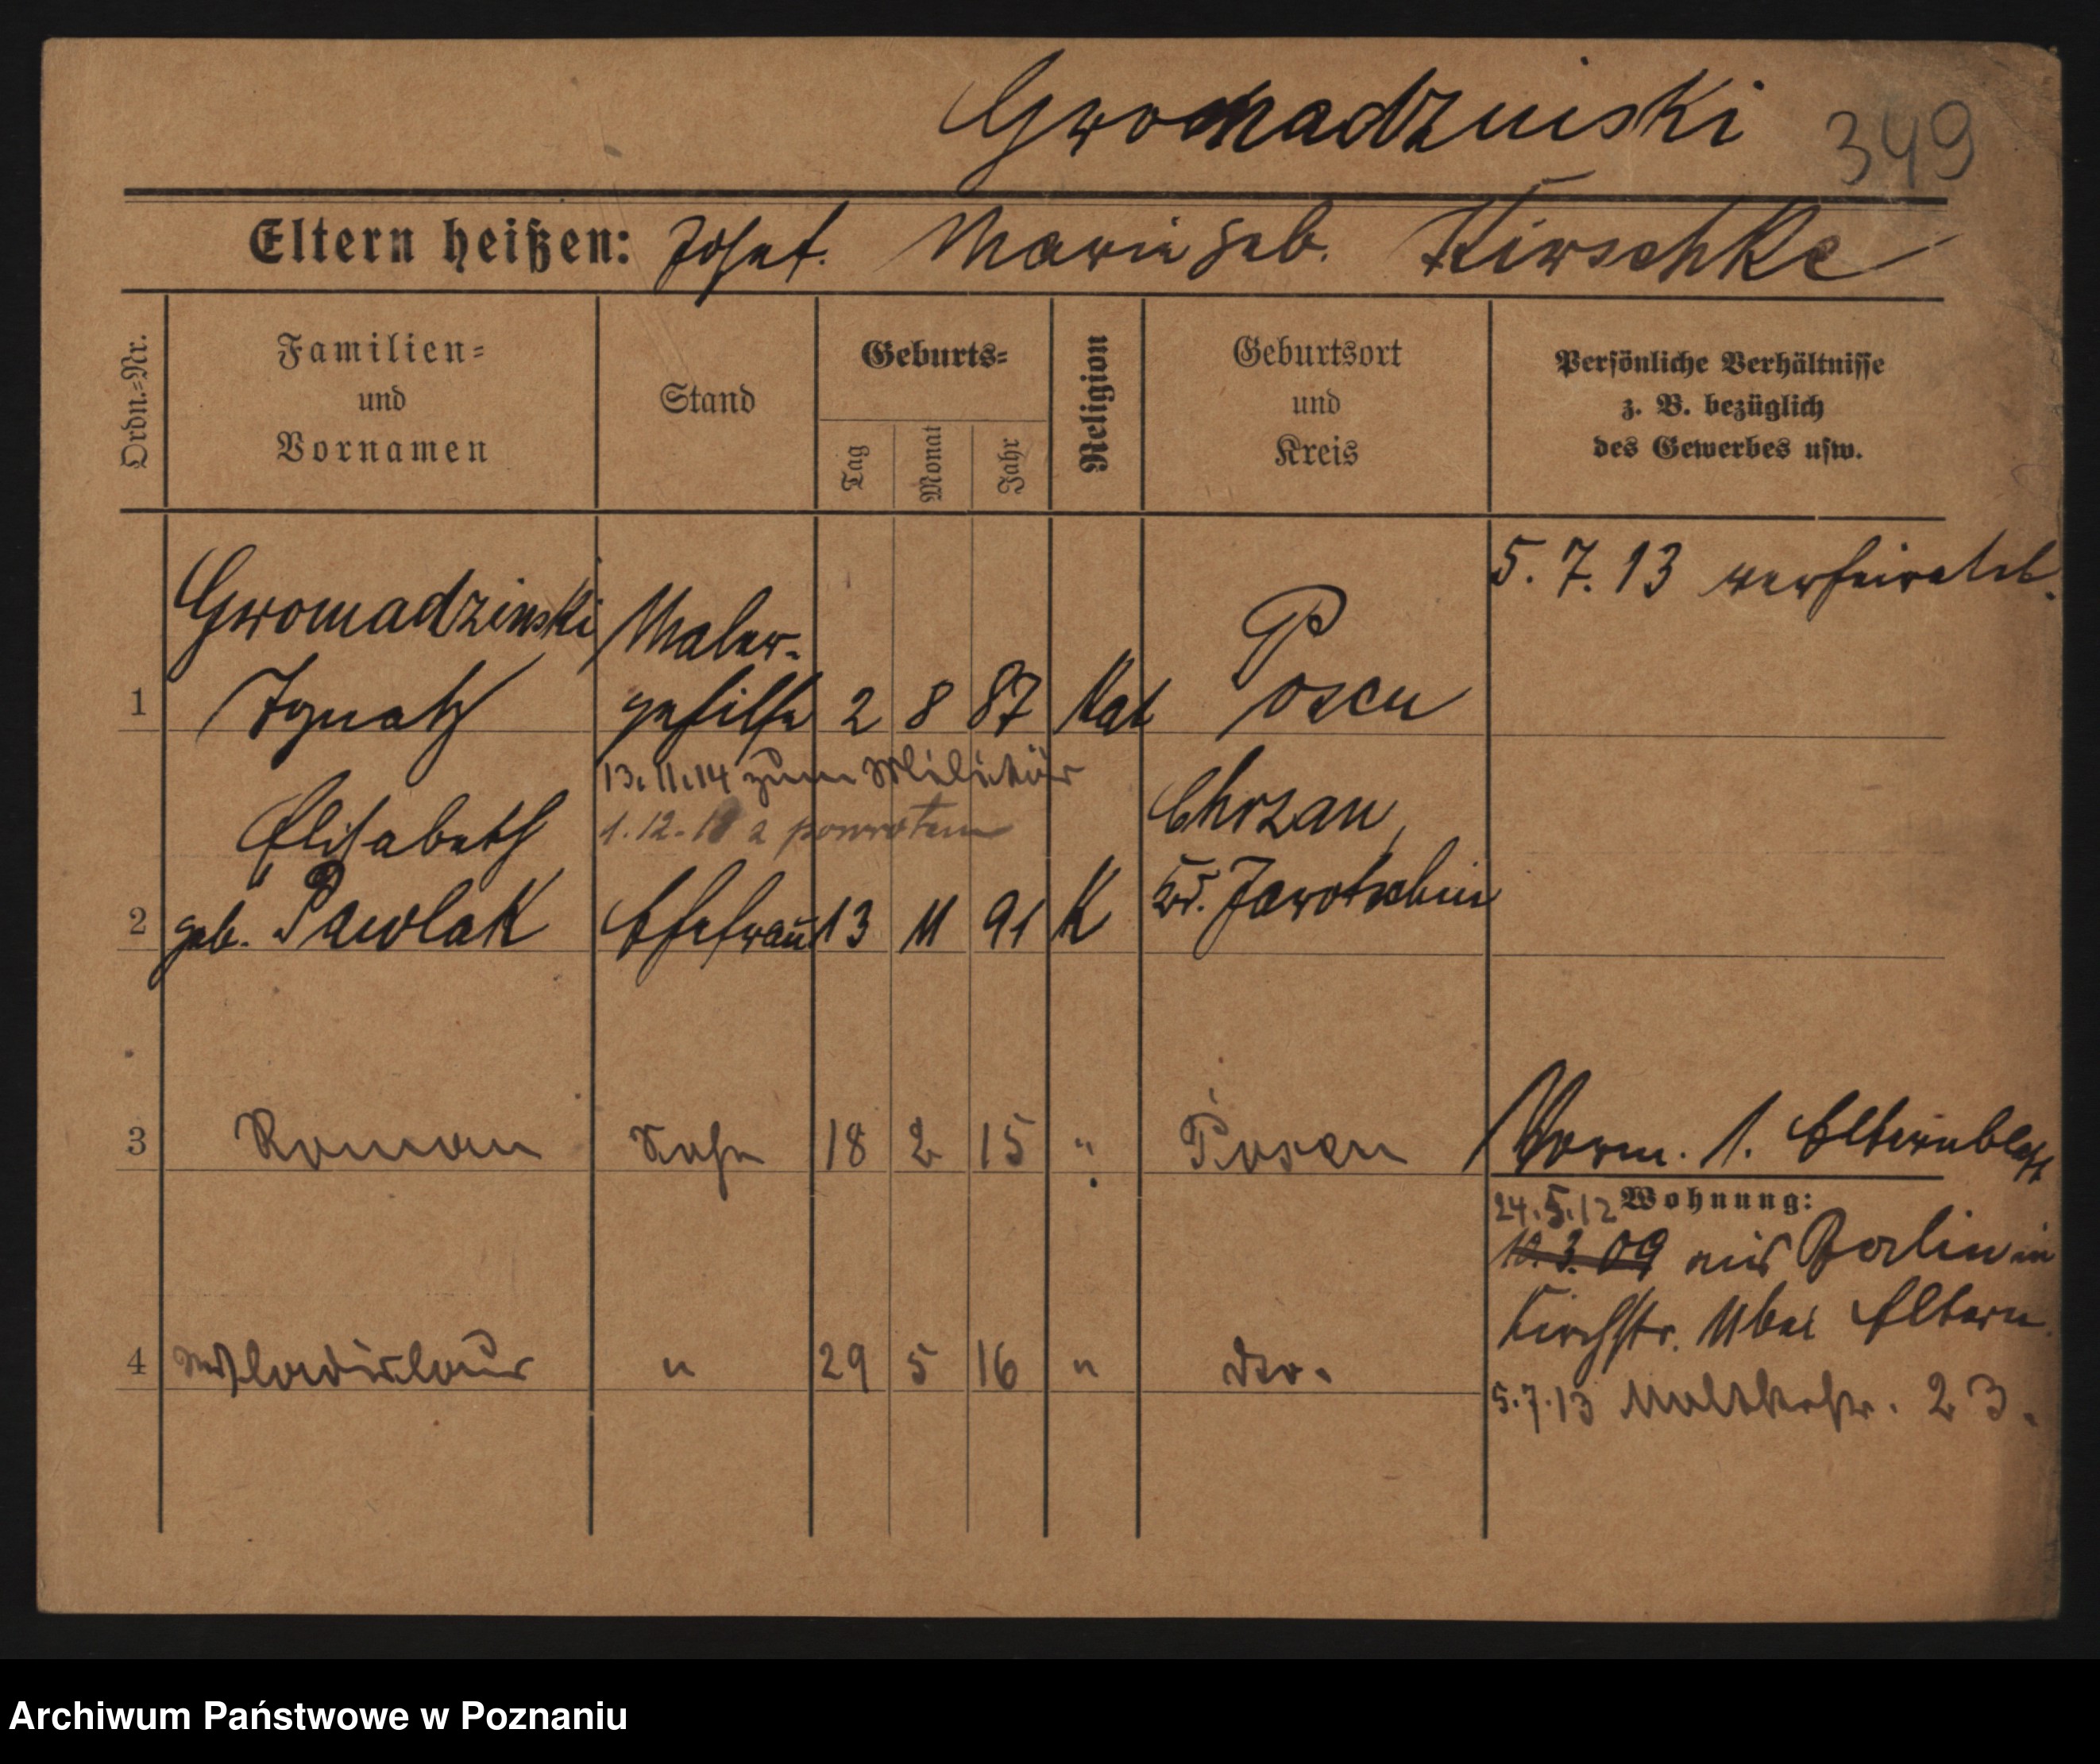 Gromadzinski 349
Eltern heißen: Josef. Marie geb. Kirschke
Ordn.=Nr.
Familien=
und
Vornamen
Stand
Geburts=
Tag
Monat
Jahr
Religion
Geburtsort
und
Kreis
Persönliche Verhältnisse
z. B. bezüglich
des Gewerbes usw.
5. 7. 13 verheiratet.
Gromadzinski Maler-
1 Ignatz gehilfe 2 8 87 Kat Posen
13.11.14 zum Militär
1.12.18 z powrotem
Elisabeth Chrzan,
2 geb. Pawlak Ehefrau 13 11 91 K Kr. Jarotschin
3 Roman Sohn 18 2 15 " Posen
Vorm. 1. Elternblatt
24.5.12 Wohnung:
10.3.09 aus Berlin in
Kirchstr. 11 bei Eltern.
4 Wladislaus " 29 5 16 " dto.
5.7.13 Moltkestr. 23.
Archiwum Państwowe w Poznaniu